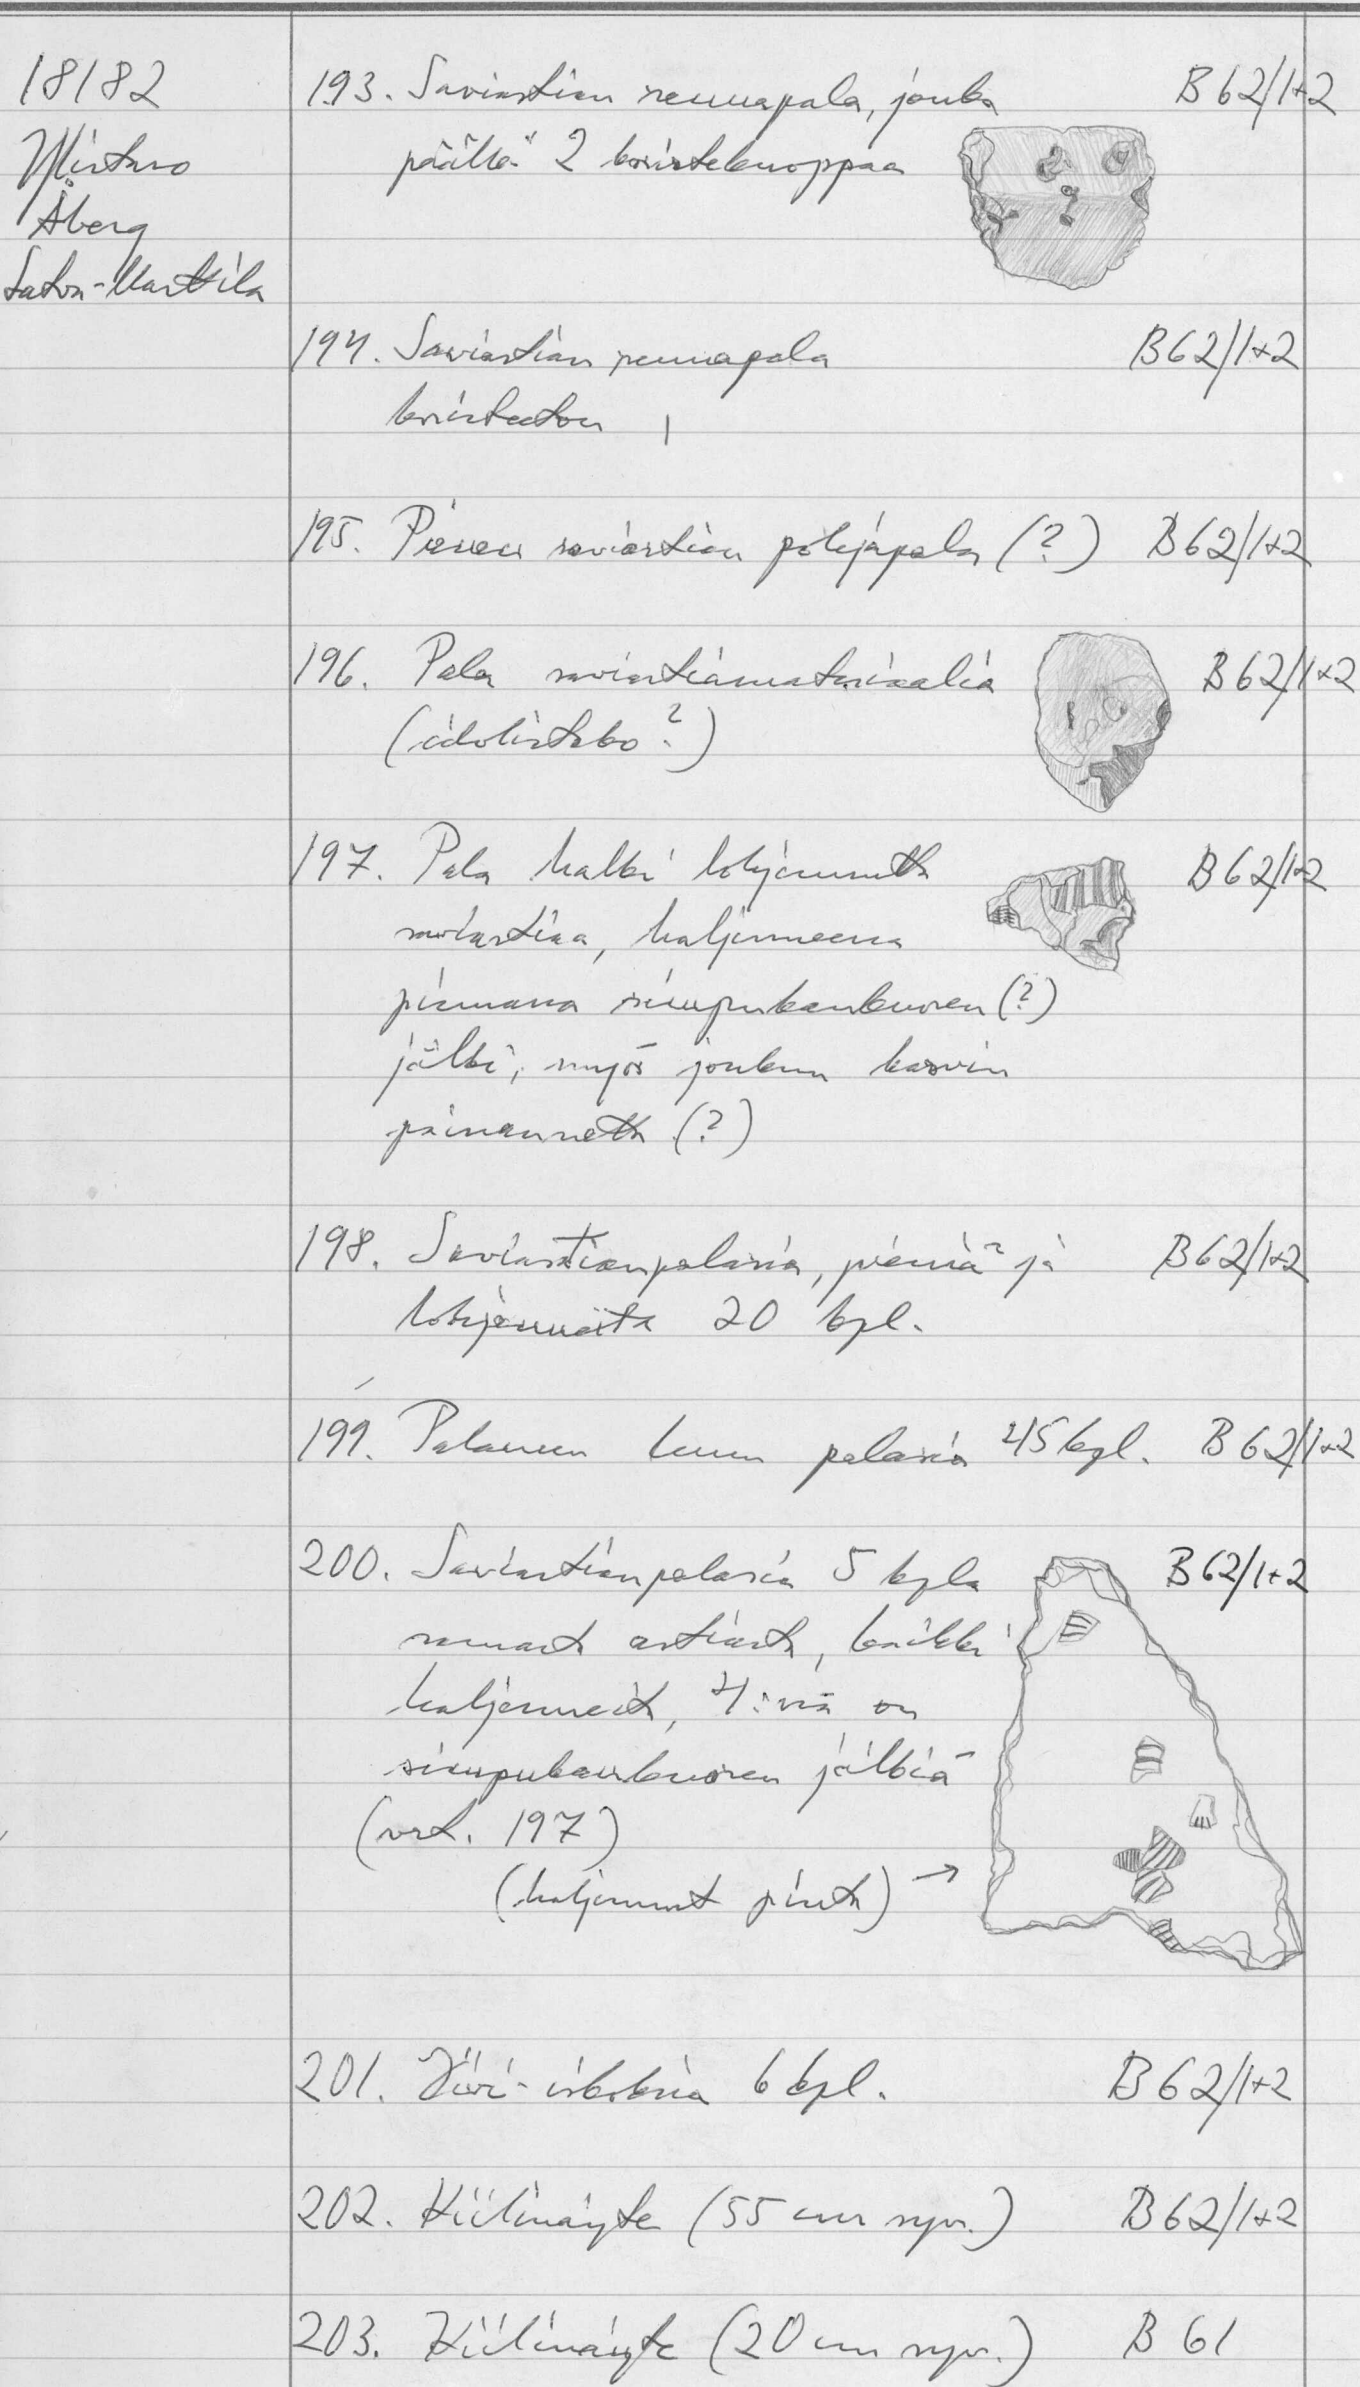 18182
Ylistaro
Åberg
Saton-Marttila
193. Saviastian reunapala, jonka B 62/1+2
päällä 2 koristekuoppaa
194. Saviastian reunapala B 62/1+2
koristeeton
195. Pienen saviastian pohjapala (?) B 62/1+2
196. Pala saviastiamateriaalia B 62/1+2
(idolistako?)
197. Pala halki lohjennutta B 62/1+2
saviastiaa, haljenneessa
pinnassa simpukankuoren (?)
jälki, myös jonkun kasvin
painannetta (?)
198. Saviastianpalasia, pieniä ja B 62/1+2
lohjenneita 20 kpl.
199. Palaneen luun palasia 45 kpl. B 62/1+2
200. Saviastianpalasia 5 kpla B 62/1+2
samasta astiasta, kaikki
haljenneita, 4:ssä on
simpukankuoren jälkiä
(vrt. 197)
(haljennut pinta) →
201. Kivi-iskoksia 6 kpl. B 62/1+2
202. Hiilinäyte (55 cm syv.) B 62/1+2
203. Hiilinäyte (20 cm syv.) B 61